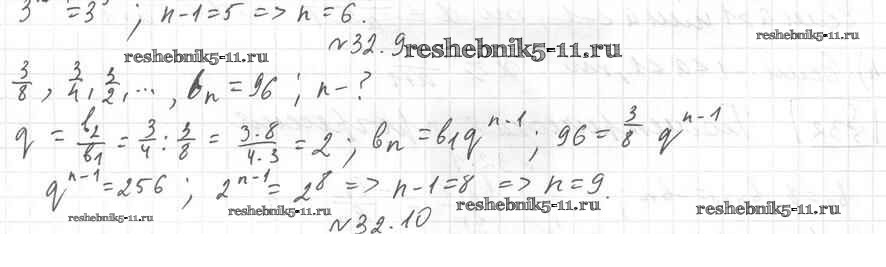 = 3⁵ ; n-1=5 => n=6.
№32.9 reshebnik5-11.ru reshebnik5-11.ru
reshebnik5-11.ru
3/8, 3/4, 3/2, ..., bₙ = 96 ; n - ?
q = b₂/b₁ = 3/4 : 3/8 = 3·8/4·3 = 2 ; bₙ = b₁qⁿ⁻¹ ; 96 = 3/8 qⁿ⁻¹
qⁿ⁻¹ = 256 ; 2ⁿ⁻¹ = 2⁸ => n-1=8 => n=9.
reshebnik5-11.ru reshebnik5-11.ru reshebnik5-11.ru reshebnik5-11.ru
№32.10